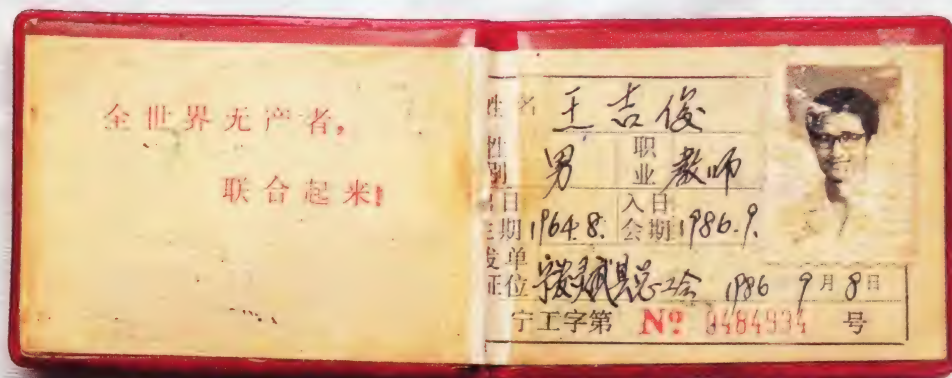 全世界无产者，
联合起来！
姓名 王吉俊
性别 男 职业 教师
出生日期 1964.8. 入会日期 1986.9.
发证单位 宁夏灵武县总工会 1986 9月8日
宁工字第 № 0484934 号